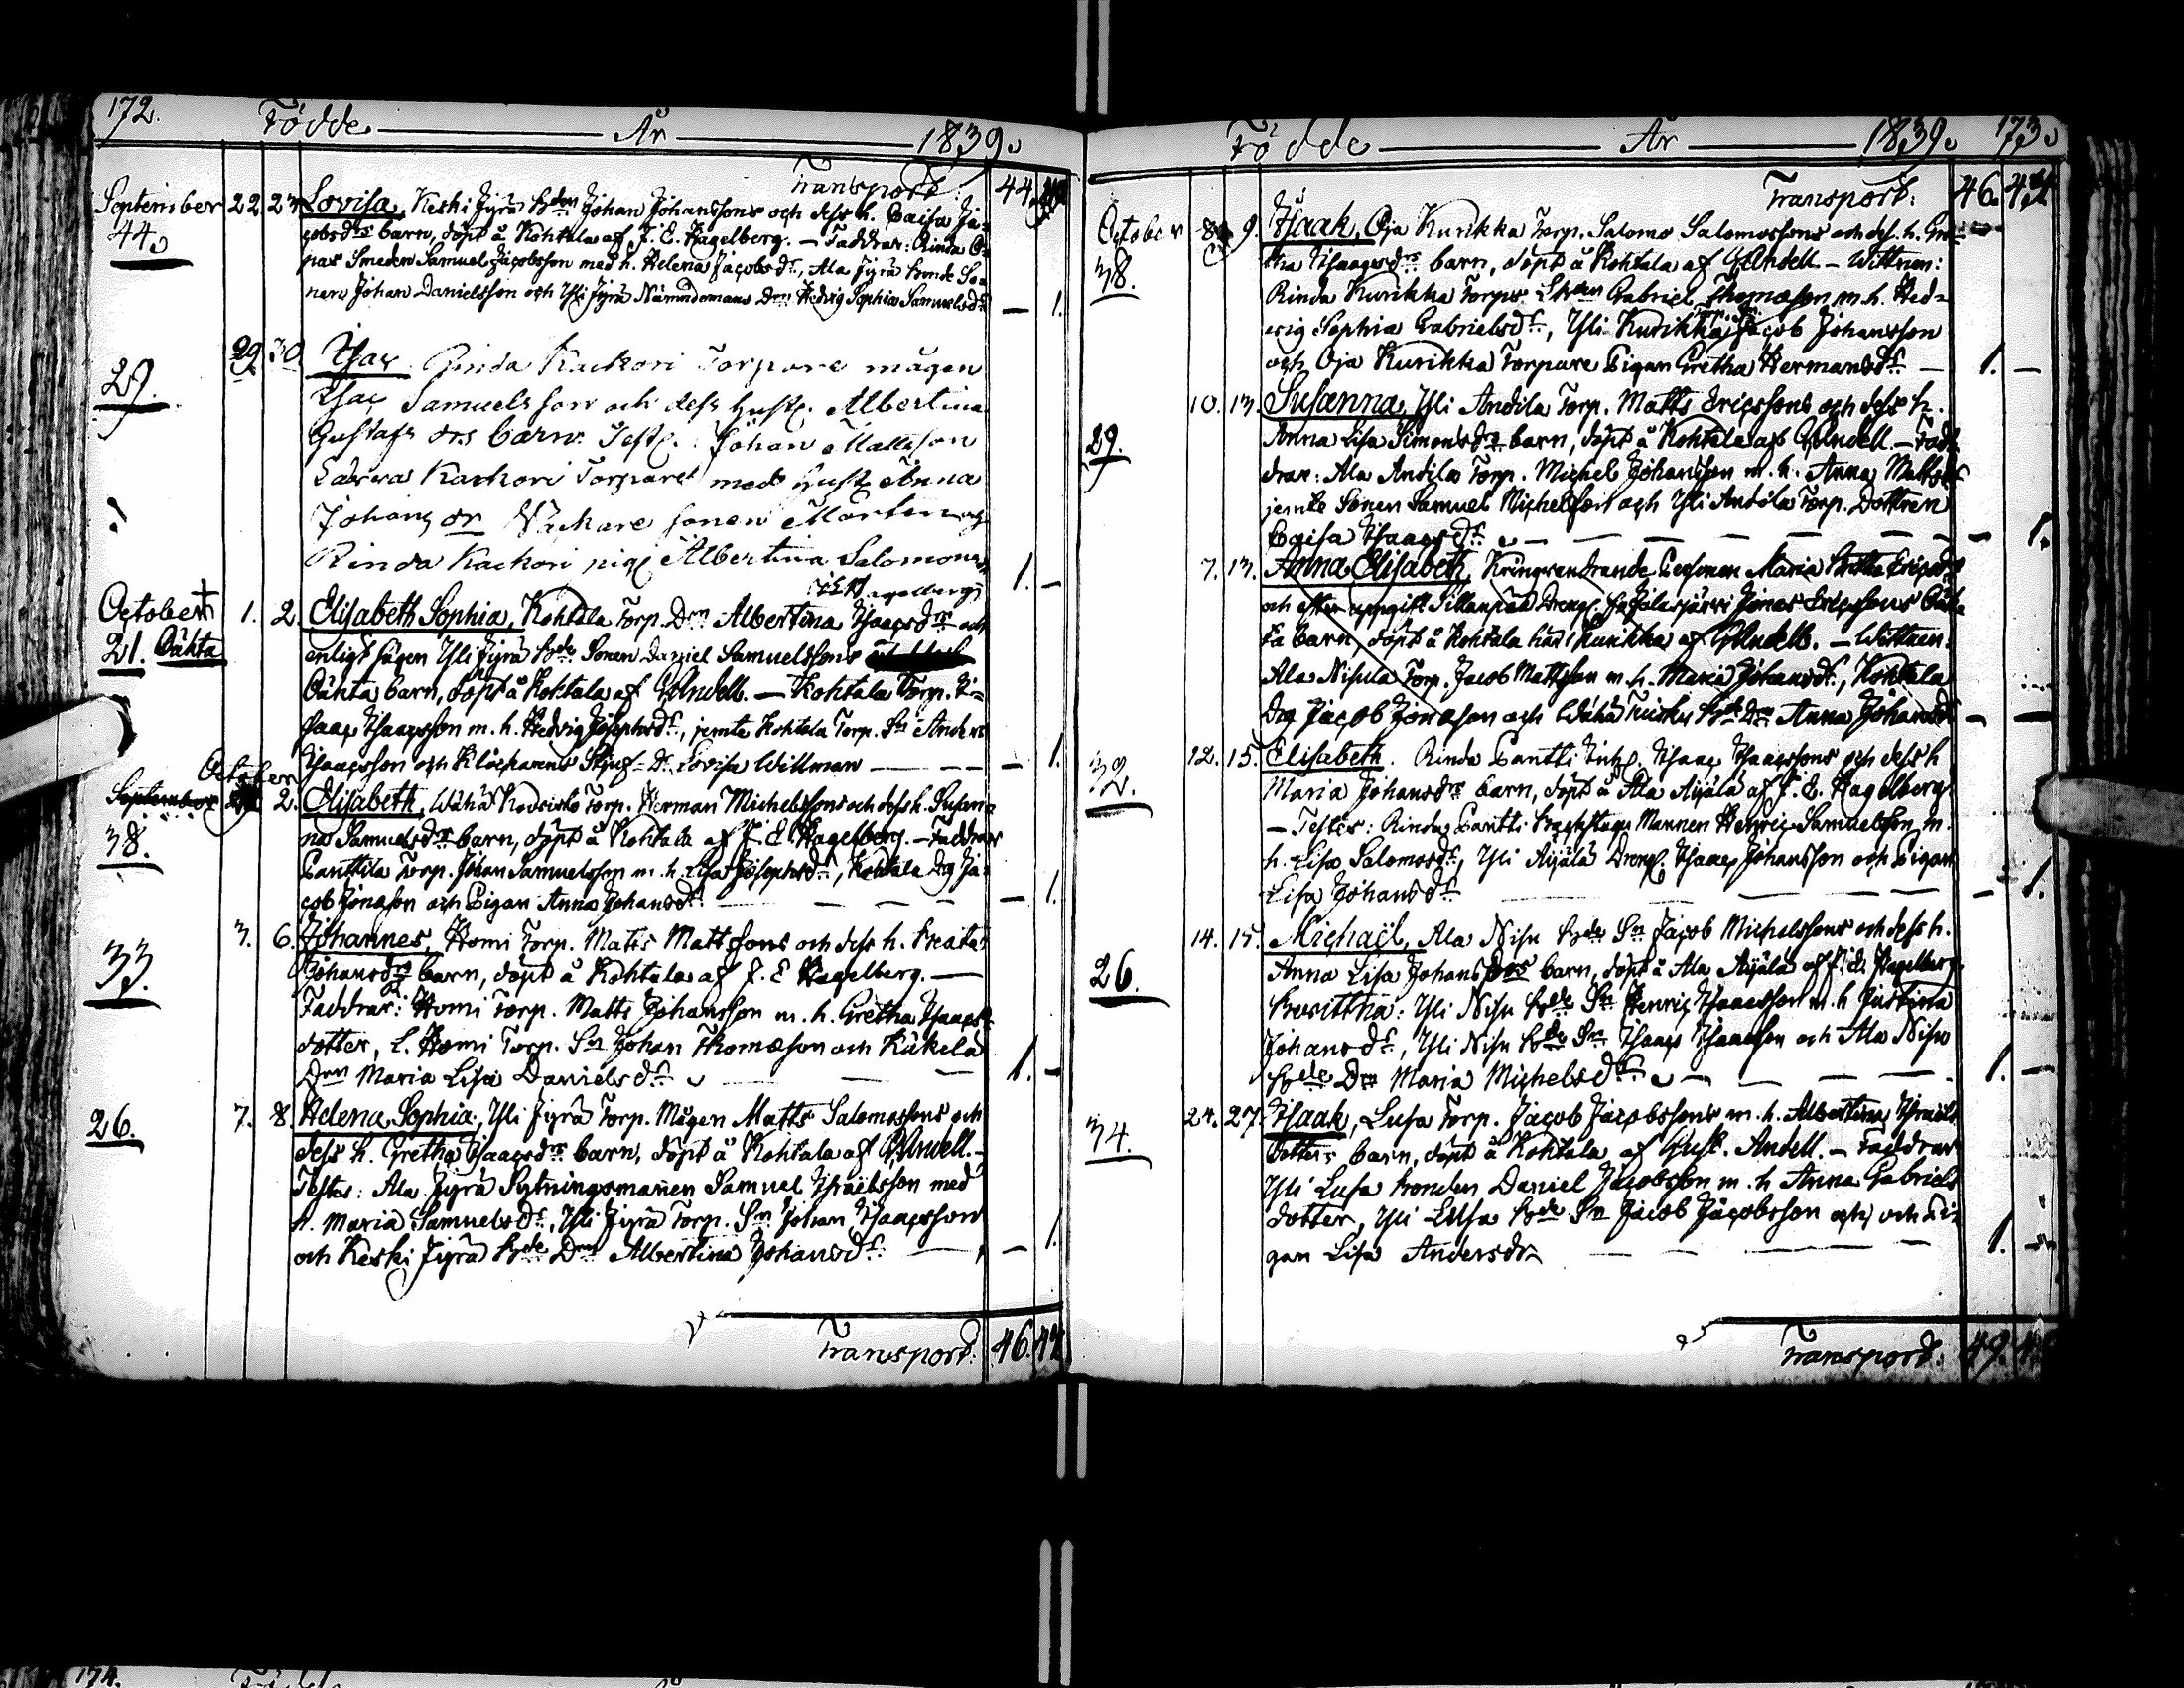 172.
Födde År 1839.
Transport: 44.
September 22. 23. Lovisa, Keski Jyrä Bden Johan Johanssons och dess h. Caisa Ja-
44. cobsdrs barn, döpt å Kohtala af J. E. Hagelberg. — Faddrar: Rinda
Smeden Samuel Jacobsson med h. Helena Jacobsdr, Ala Jyrä bonde So-
nen Johan Danielsson och Yli Jyrä Nämndemans Drn Hedvig Sophia Samuelsdr — 1.
29. 30. Isac Rinda Kackori Torpare mågen
29. Isac Samuelsson och dess hust. Albertina
Gustafs drs barn. Test. Johan Mattsson
Kackori Torparen med hust Anna
Johans dr Väckare sonen Mårten och
Rinda Kackori pig. Albertina Salomons 1. —
J E Hagelberg
October 1. 2. Elisabeth Sophia, Kohtala Torp. Drn Albertina Isaacsdrs och
21. Oäkta enligt sägen Yli Jyrä Bde Sonen Daniel Samuelssons
Oäkta barn, döpt å Kohtala af G Andell. — Kohtala Torp. I-
saac Isaacsson m. h. Hedvig Josephsdr, jemte Kohtala Torp. Sn Anders
Isaacsson och Klockarens Lovisa Willman — 1.
October
September 2. Elisabeth, Wähä Torp. Herman Michelssons och dess h. Susan-
38. na Samuelsdrs barn, döpt å Kohtala af J. E. Hagelberg. — Faddrar
Panttila Torp. Johan Samuelsson m. h. Lisa Josephsdr, Kohtala Drg Ja-
cob Jonasson och Pigan Anna Johansdr — 1.
3. 6. Johannes, Homi Torp. Matts Mattssons och dess h. Beata
33. Johansdrs barn, döpt å Kohtala af J. E Hagelberg. —
Faddrar: Homi Torp. Matts Johansson m. h. Gretha Isaacs-
dotter, L. Homi Torp. Sn Johan Thomasson och Käkelä
Drn Maria Lisa Danielsdr 1. —
26. 7. 8. Helena Sophia, Yli Jyrä Torp. Mågen Matts Salomossons och
dess h. Gretha Isaacsdrs barn, döpt å Kohtala af G Andell. —
Testes: Ala Jyrä Sytningsmannen Samuel Israelsson med
h. Maria Samuelsdr, Yli Jyrä Torp. Sn Johan Isaacsson
och Keski Jyrä Bde Drn Albertina Johansdr — 1.
Transport: 46.
Födde År 1839. 173.
Transport: 46.
October 8. 9. Isaak, Oja Kurikka Torp. Salomo Salomossons och dess h. Gre-
38. tha Isaacsdrs barn, döpt å Kohtala af G Andell — Wittnen:
Rinda Kurikka Torpar Gabriel Thomasson m. h. Hed-
vig Sophia Gabrielsdr, Yli Kurikka Jacob Johansson
och Oja Kurikka Torpare Pigan Gretha Hermansdr — 1. —
10. 13. Susanna, Yli Andila Torp. Matts Ericssons och dess h.
29. Anna Lisa Simonsdrs barn, döpt å Kohtala af G Andell — Fad-
drar: Ala Andila Torp. Michel Johansson m. h. Anna Mattsdr
jemte Sonen Samuel Michelsson och Yli Andila Torp. Dottren
Caisa Isaacsdr — 1.
7. 13. Anna Elisabeth, Kringvandrande Personen Maria Ericsdrs
och efter uppgift Drengs Jonas Ericssons Oäk-
ta barn, döpt å Kohtala af G Andell. — Wittnen:
Ala Nisula Torp. Jacob Mattsson m. h. Maria Johansdr, Kohtala
Drg Jacob Jonasson och Wähä Tuisku Bde Drn Anna Johansdr — —
12. 15. Elisabeth. Rinda Pantti Inh. Isaac Isaacssons och dess h
32. Maria Johansdrs barn, döpt å Ala Äijälä af J. E. Hagelberg.
— Testes: Rinda Pantti Mannen Henric Samuelsson m.
h. Lisa Salomosdr, Yli Äijälä Dreng. Isaac Johansson och Pigan
Lisa Johansdr — 1.
14. 15. Michaël, Ala Nisu Bde Sn Jacob Michelssons och dess h.
26. Anna Lisa Johansdrs barn, döpt å Ala Äijälä af J. E. Hagelberg.
Yli Nisu Bde Sn Henric Isaacsson m. h Justina
Johansdr, Yli Nisu Bde Sn Isaac Isaacsson och Ala Nisu
Bde Drn Maria Michelsdr 1. —
24. 27. Isaak, Lusa Torp. Jacob Jacobssons m. h. Albertina Israels
34. Dotters barn, döpt å Kohtala af Gust. Andell. — Faddrar
Yli Lusa bonden Daniel Jacobsson m. h Anna Gabriels
dotter, Yli Lusa Bde Sn Jacob Jacobsson och och Pi-
gan Lisa Andersdr 1. —
Transport: 49.
174.